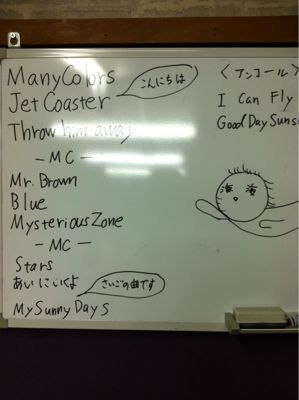 ManyColors
こんにちは
Jet Coaster
Throw him away
－MC－
Mr. Brown
Blue
Mysterious Zone
－MC－
Stars
あいにいくよ
さいごの曲です
My Sunny Days
<アンコール>
I Can Fly
Good Day Suns
海 海